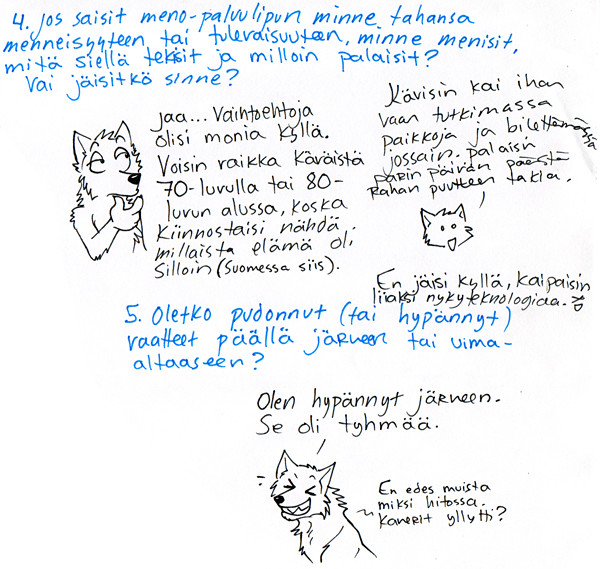 4. Jos saisit meno-paluulipun minne tahansa
menneisyyteen tai tulevaisuuteen, minne menisit,
mitä siellä tekisit ja milloin palaisit?
Vai jäisitkö sinne?
Jaa... Vaihtoehtoja
olisi monia kyllä.
Voisin vaikka käväistä
70-luvulla tai 80-
luvun alussa, koska
kiinnostaisi nähdä
millaista elämä oli
silloin (Suomessa siis).
Kävisin kai ihan
vaan tutkimassa
paikkoja ja bilettämässä
jossain. palaisin
parin päivän päästä
Rahan puutteen takia.
En jäisi kyllä, kaipaisin
liiaksi nykyteknologiaa.
5. Oletko pudonnut (tai hypännyt)
vaatteet päällä järveen tai uima-
altaaseen?
Olen hypännyt järveen.
Se oli tyhmää.
En edes muista
miksi hitossa.
Kaverit yllytti?